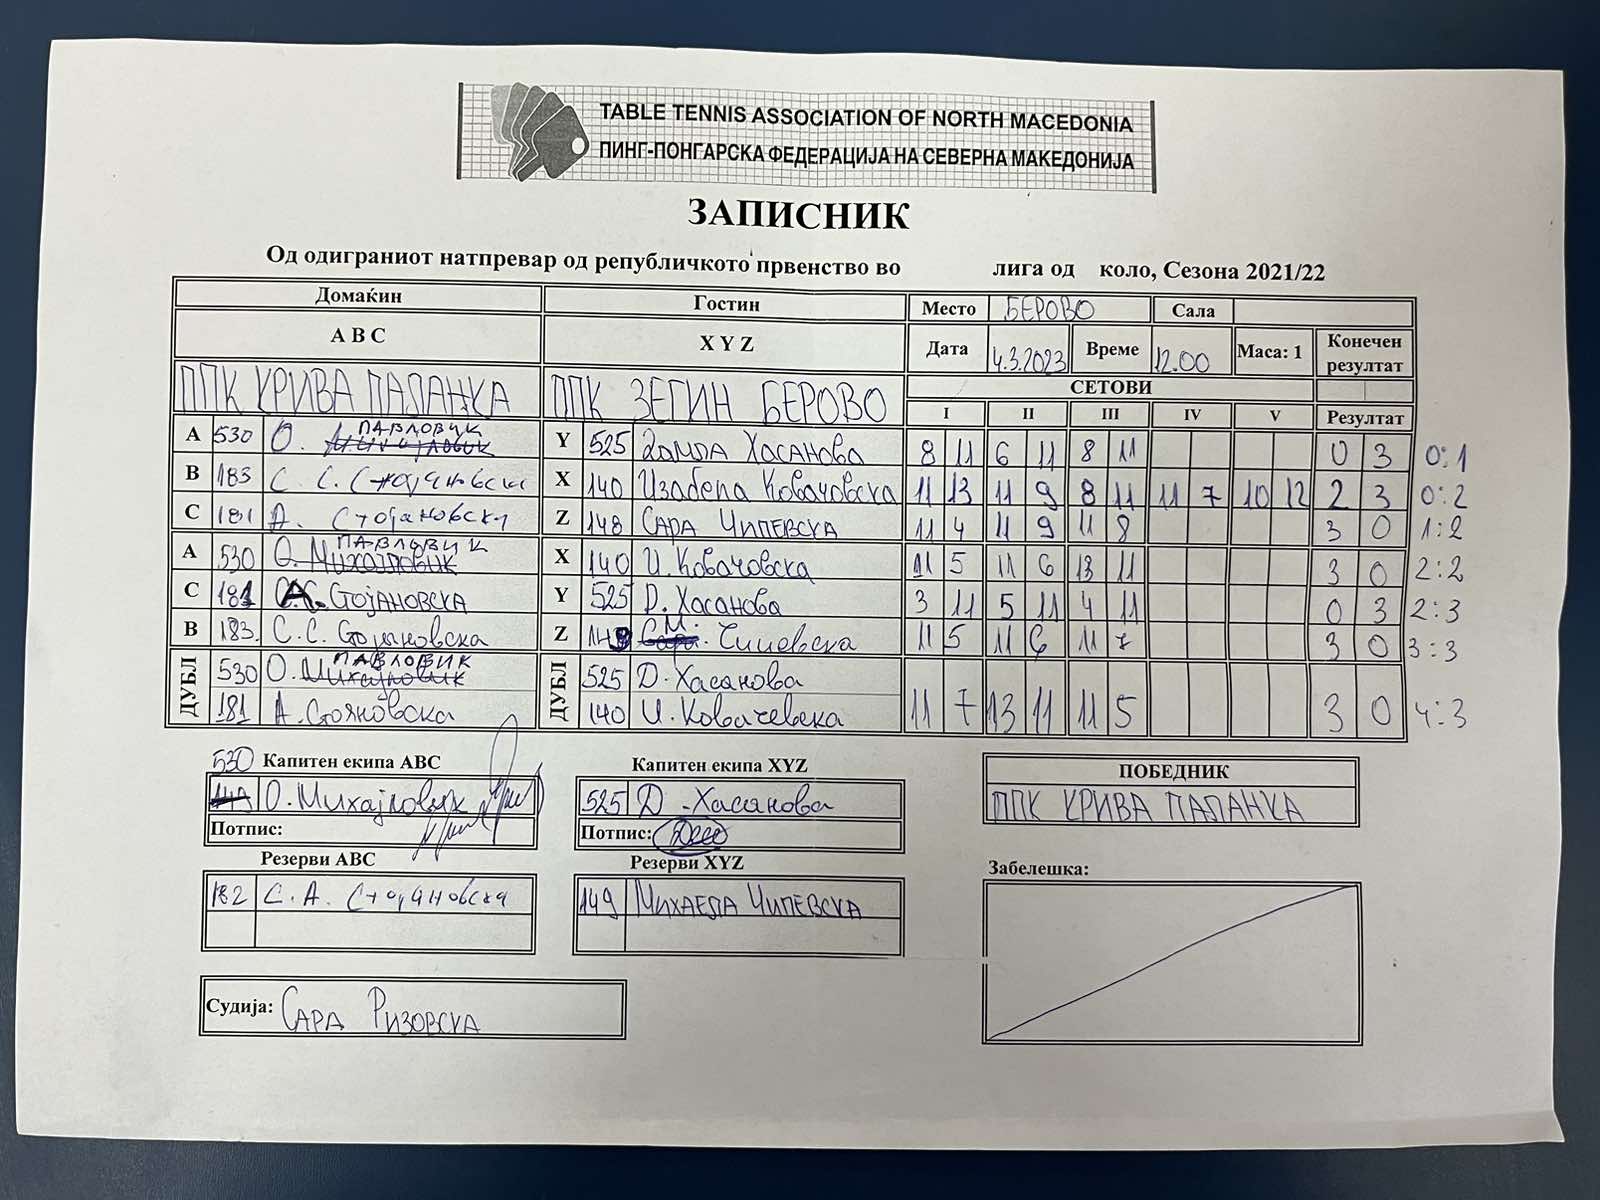 TABLE TENNIS ASSOCIATION OF NORTH MACEDONIA
ПИНГ-ПОНГАРСКА ФЕДЕРАЦИЈА НА СЕВЕРНА МАКЕДОНИЈА
ЗАПИСНИК
Од одиграниот натпревар од републичкото првенство во лига од коло, Сезона 2021/22
Домаќин Гостин Место БЕРОВО Сала
A B C X Y Z Дата 4.3.2023 Време 12.00 Маса: 1 Конечен резултат
ППК КРИВА ПАЛАНКА ППК ЗЕГИН БЕРОВО СЕТОВИ
I II III IV V Резултат
A 530 О. ПАВЛОВИК Y 525 Хасанова 8 11 6 11 8 11 0 3 0:1
B 183 С. С. Стојановска X 140 Изабела Ковачовска 11 13 11 9 8 11 11 7 10 12 2 3 0:2
C 181 А. Стојановска Z 148 САРА ЧИПЕВСКА 11 4 11 9 11 8 3 0 1:2
A 530 О. Михајловик ПАВЛОВИК X 140 И. Ковачовска 11 5 11 6 13 11 3 0 2:2
C 181 А. СТОЈАНОВСКА Y 525 Д. Хасанова 3 11 5 11 4 11 0 3 2:3
B 183. С. С. Стојановска Z 149 М. Чипевска 11 5 11 6 11 7 3 0 3:3
ДУБЛ 530 О. Михајловик ПАВЛОВИК ДУБЛ 525 Д. Хасанова
181 А. Стояновска 140 И. Ковачевска 11 7 13 11 11 5 3 0 4:3
530 Капитен екипа ABC Капитен екипа XYZ ПОБЕДНИК
О. Михајловик 525 Д. Хасанова ППК КРИВА ПАЛАНКА
Потпис: Потпис:
Резерви ABC Резерви XYZ Забелешка:
182 С. А. Стојановска 149 МИХАЕЛА ЧИПЕВСКА
Судија: САРА РИЗОВСКА